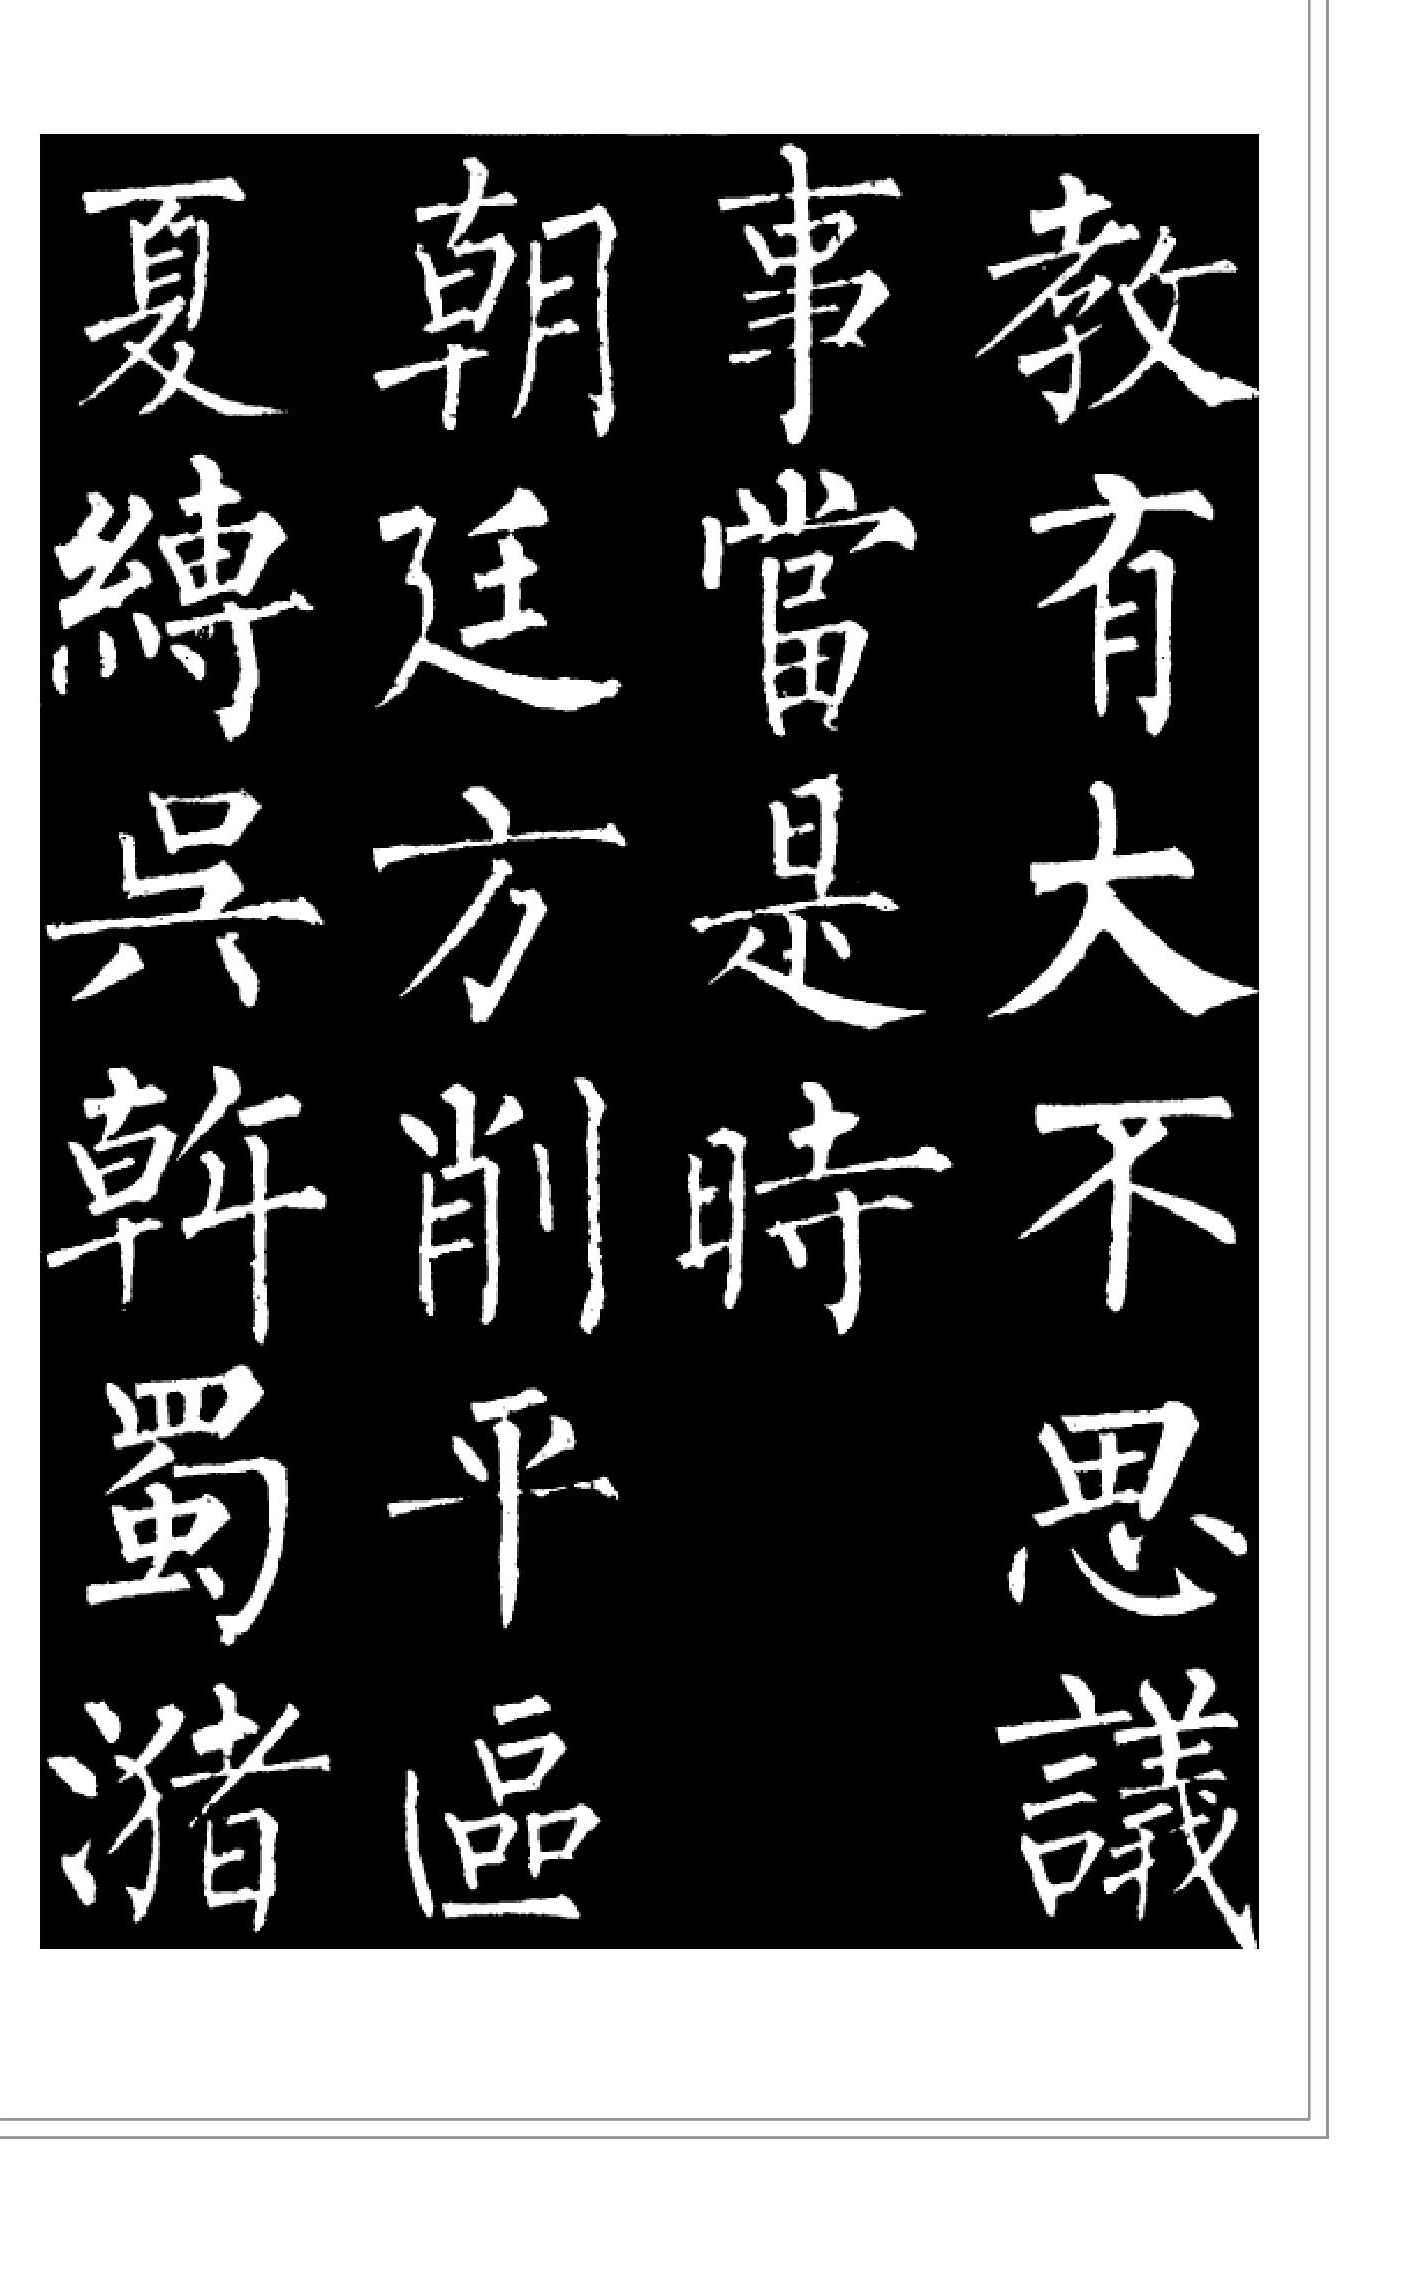 教有大不思議
事當是時
朝廷方削平區
夏縛吳斡蜀瀦